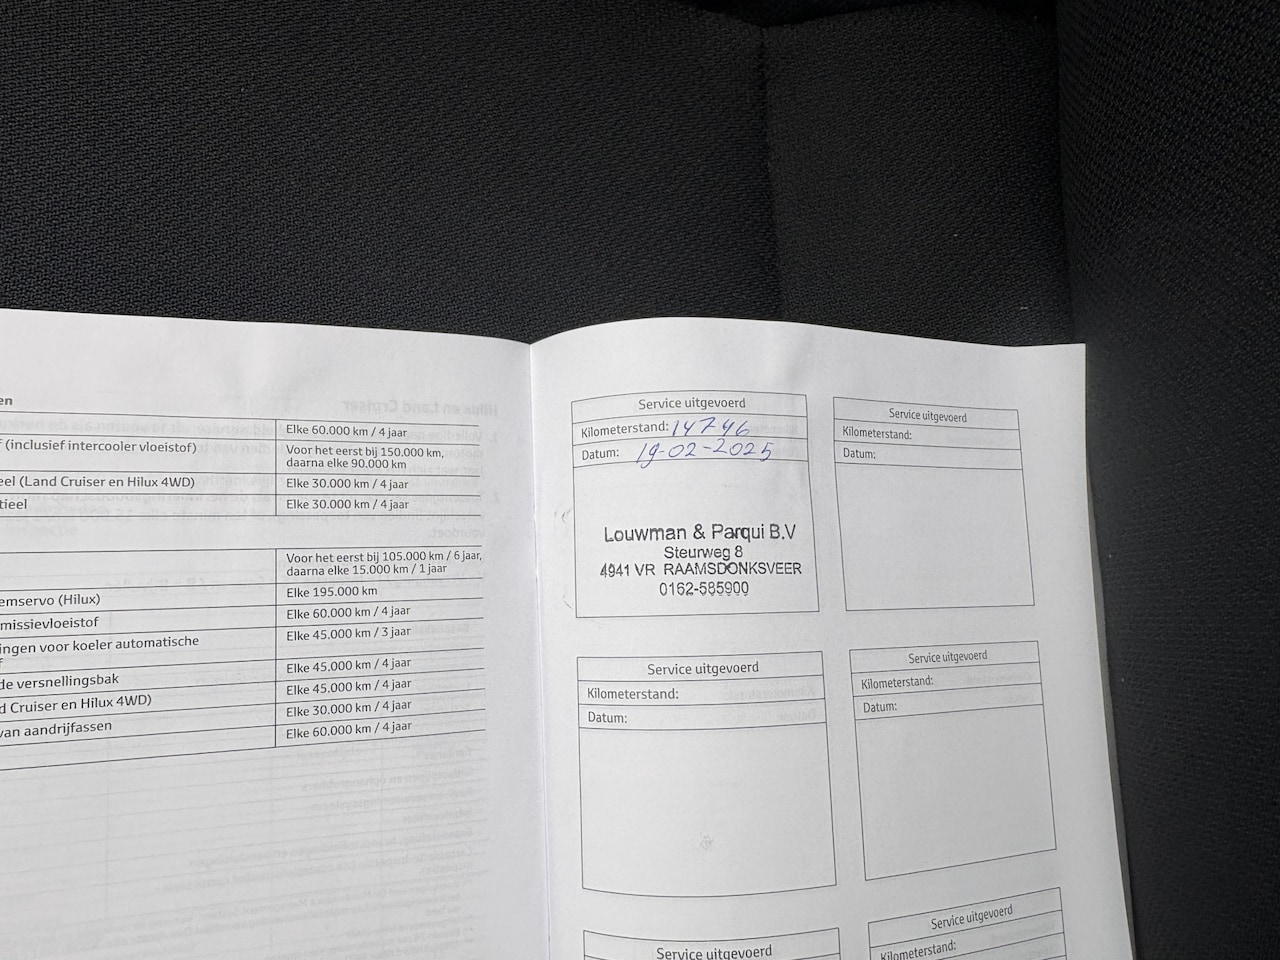 en
Elke 60.000 km / 4 jaar
f (inclusief intercooler vloeistof)
Voor het eerst bij 150.000 km,
daarna elke 90.000 km
eel (Land Cruiser en Hilux 4WD)
Elke 30.000 km / 4 jaar
tieel
Elke 30.000 km / 4 jaar
Voor het eerst bij 105.000 km / 6 jaar,
daarna elke 15.000 km / 1 jaar
emservo (Hilux)
Elke 195.000 km
missievloeistof
Elke 60.000 km / 4 jaar
ingen voor koeler automatische
f
Elke 45.000 km / 3 jaar
de versnellingsbak
Elke 45.000 km / 4 jaar
d Cruiser en Hilux 4WD)
Elke 45.000 km / 4 jaar
van aandrijfassen
Elke 30.000 km / 4 jaar
Elke 60.000 km / 4 jaar
Service uitgevoerd
Kilometerstand: 14746
Datum: 19-02-2025
Louwman & Parqui B.V
Steurweg 8
4941 VR RAAMSDONKSVEER
0162-585900
Service uitgevoerd
Kilometerstand:
Datum:
Service uitgevoerd
Kilometerstand:
Datum:
Service uitgevoerd
Kilometerstand:
Datum:
Service uitgevoerd
Service uitgevoerd
Kilometerstand: